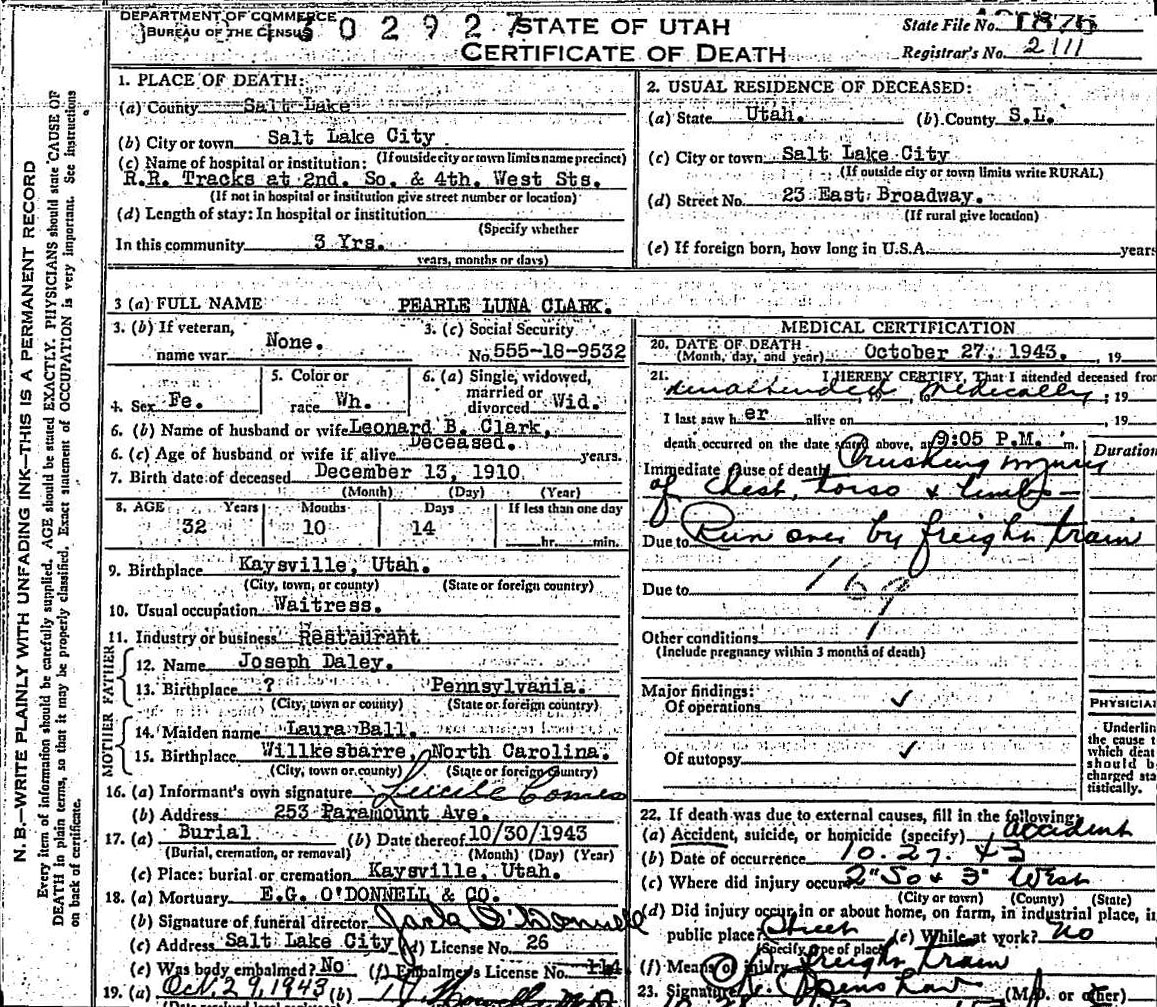 DEPARTMENT OF COMMERCE
BUREAU OF THE CENSUS
302927
STATE OF UTAH
CERTIFICATE OF DEATH
State File No. 1876
Registrar's No. 2111
1. PLACE OF DEATH:
(a) County Salt Lake
(b) City or town Salt Lake City
(If outside city or town limits name precinct)
(c) Name of hospital or institution:
R.R. Tracks at 2nd. So. & 4th. West Sts.
(If not in hospital or institution give street number or location)
(d) Length of stay: In hospital or institution
(Specify whether
In this community 3 Yrs.
years, months or days)
2. USUAL RESIDENCE OF DECEASED:
(a) State Utah. (b) County S.L.
(c) City or town Salt Lake City
(If outside city or town limits write RURAL)
(d) Street No. 23 East Broadway.
(If rural give location)
(e) If foreign born, how long in U.S.A. years
3 (a) FULL NAME PEARLE LUNA CLARK.
3. (b) If veteran, name war None.
3. (c) Social Security No. 555-18-9532
4. Sex Fe.
5. Color or race Wh.
6. (a) Single, widowed, married or divorced Wid.
6. (b) Name of husband or wife Leonard B. Clark,
Deceased.
6. (c) Age of husband or wife if alive years.
7. Birth date of deceased December 13, 1910
(Month) (Day) (Year)
8. AGE Years Months Days If less than one day
32 10 14 hr. min.
9. Birthplace Kaysville, Utah.
(City, town, or county) (State or foreign country)
10. Usual occupation Waitress.
11. Industry or business Restaurant
FATHER
12. Name Joseph Daley.
13. Birthplace ? Pennsylvania.
(City, town or county) (State or foreign country)
MOTHER
14. Maiden name Laura Ball.
15. Birthplace Willkesbarre, North Carolina.
(City, town or county) (State or foreign Country)
16. (a) Informant's own signature Lucile
(b) Address 253 Paramount Ave.
17. (a) Burial (b) Date thereof 10/30/1943
(Burial, cremation, or removal) (Month) (Day) (Year)
(c) Place: burial or cremation Kaysville, Utah.
18. (a) Mortuary E.G. O'DONNELL & CO.
(b) Signature of funeral director Jack O'Donnell
(c) Address Salt Lake City (d) License No. 26
(e) Was body embalmed? No (f) Embalmer's License No. 114
19. (a) Oct. 29, 1943 (b)
MEDICAL CERTIFICATION
20. DATE OF DEATH
(Month, day, and year) October 27, 1943. , 19
21. I HEREBY CERTIFY, That I attended deceased from
unattended medically , 19
I last saw her alive on , 19
death occurred on the date stated above, at 9:05 P.M. m.
Duration
Immediate cause of death Crushing injury
of chest, torso & limbs
Due to Run over by freight train
Due to
169
Other conditions
(Include pregnancy within 3 months of death)
Major findings:
Of operations ✓
Of autopsy ✓
PHYSICIAN
Underlin
the cause t
which deat
should b
charged sta
tistically.
22. If death was due to external causes, fill in the following:
(a) Accident, suicide, or homicide (specify) accident
(b) Date of occurrence 10. 27. 43
(c) Where did injury occur 2" So & 3" West
(City or town) (County) (State)
(d) Did injury occur in or about home, on farm, in industrial place, in
public place? Street (e) While at work? No
(Specify type of place)
(f) Means of injury freight train
23. Signature (M.D. or other)
N. B.—WRITE PLAINLY WITH UNFADING INK—THIS IS A PERMANENT RECORD
Every item of information should be carefully supplied. AGE should be stated EXACTLY. PHYSICIANS should state CAUSE OF
DEATH in plain terms, so that it may be properly classified. Exact statement of OCCUPATION is very important. See instructions
on back of certificate.